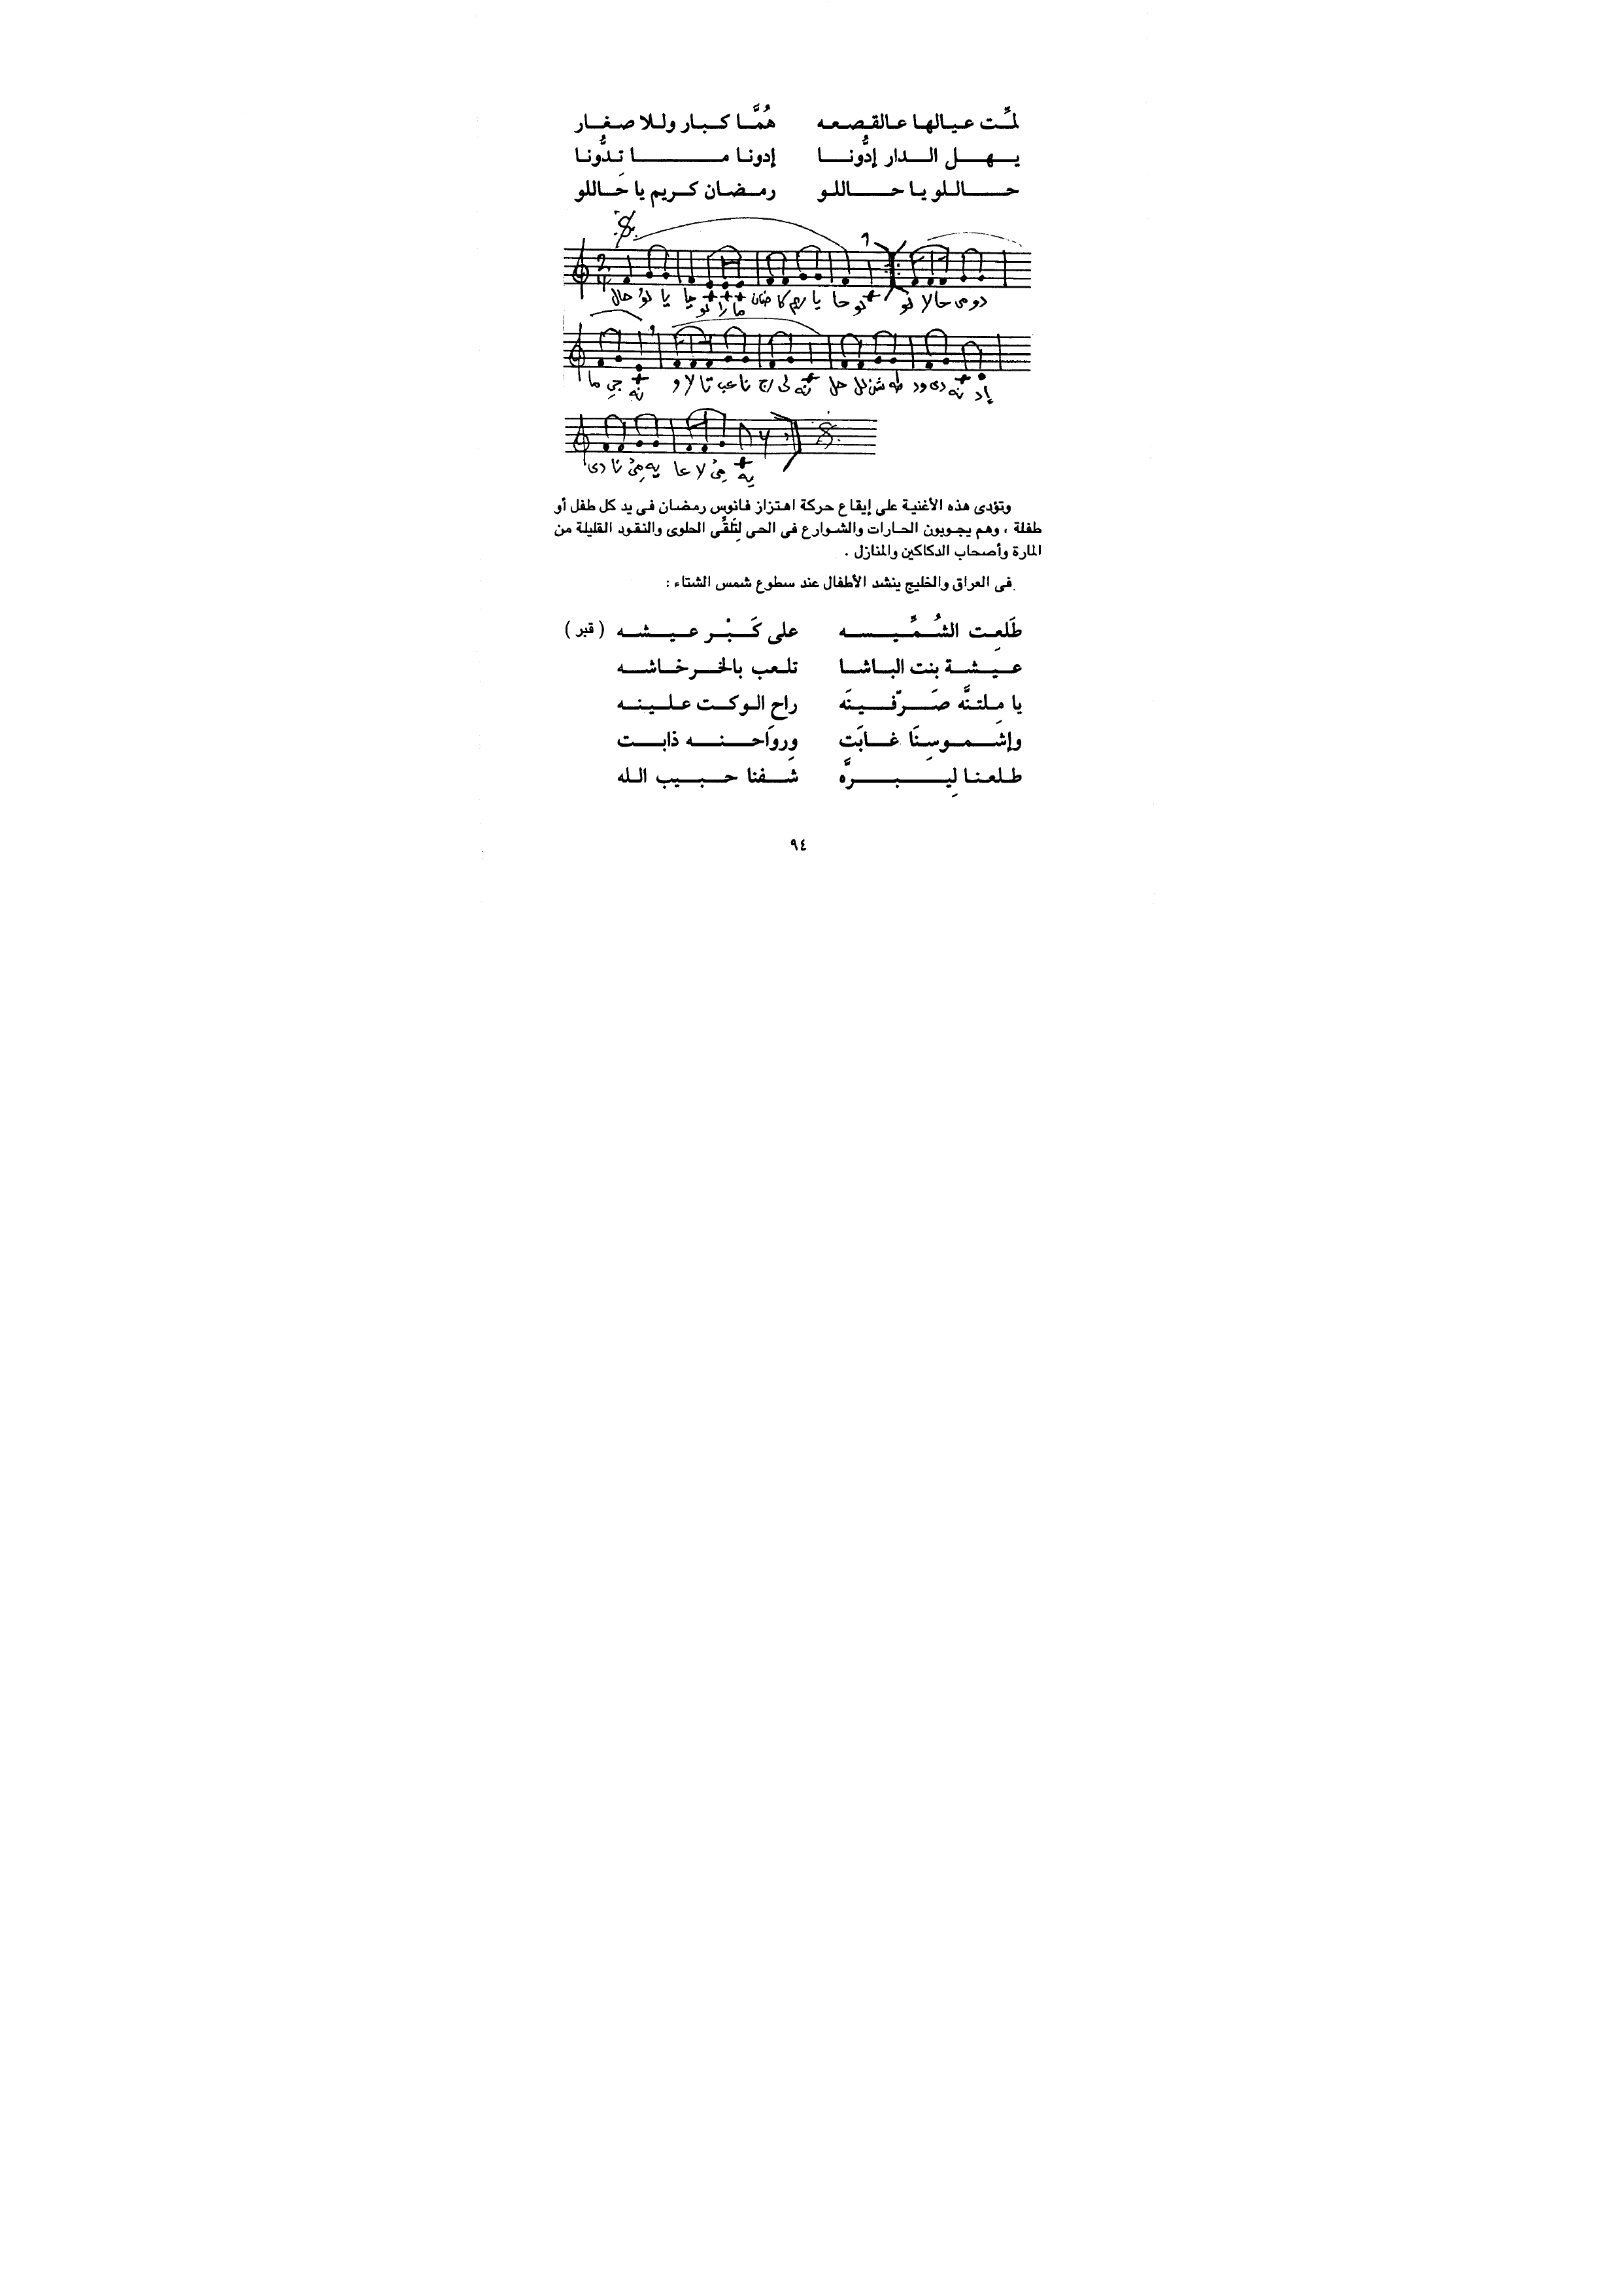 لمَّت عيالها عالقصعه هُمَّا كبار وللا صغار
يهل الدار إدُّونا إدونا ما تِدُّونا
حاللو يا حاللو رمضان كريم يا حَاللو
2
4
حال لوُ يا يا حا لو را ما ضان كا ريم يا حا لو لو لا حا دومى
ما جِي نه و لا تا عب نا رج لى نه حل لل شن طه ود دى نه إد
دى نا مِىْ يه عا لا مِىْ يه
وتؤدى هذه الأغنية على إيقاع حركة اهتزاز فانوس رمضان فى يد كل طفل أو
طفلة ، وهم يجوبون الحارات والشوارع فى الحى لِتَلقُّى الحلوى والنقود القليلة من
المارة وأصحاب الدكاكين والمنازل .
فى العراق والخليج ينشد الأطفال عند سطوع شمس الشتاء :
طَلَعِت الشُمِّيسه على كَبْر عيشه ( قبر )
عيشة بنت الباشا تلعب بالخرخاشه
يا مِلتنَّه صَرّفينَه راح الوكت علينه
وإشموسِنَا غابَت ورِواحنه ذابت
طلعنا لِيبرَّه شفنا حبيب الله
٩٤